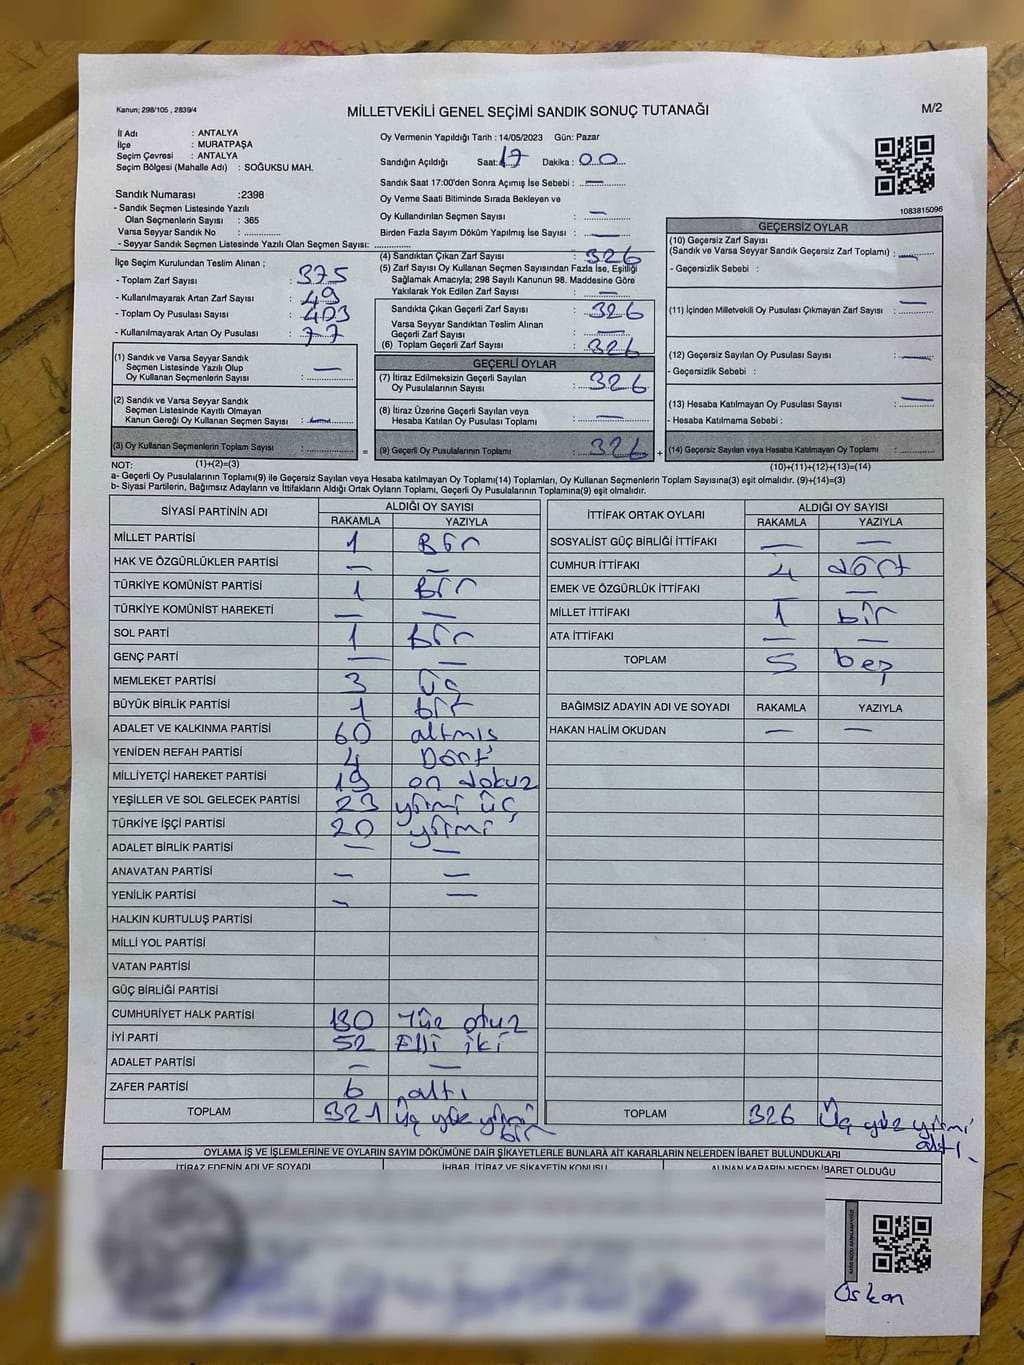 Kanun; 298/105 , 2839/4
MİLLETVEKİLİ GENEL SEÇİMİ SANDIK SONUÇ TUTANAĞI
M/2
İl Adı : ANTALYA
İlçe : MURATPAŞA
Seçim Çevresi : ANTALYA
Seçim Bölgesi (Mahalle Adı) : SOĞUKSU MAH.
Sandık Numarası :2398
- Sandık Seçmen Listesinde Yazılı
Olan Seçmenlerin Sayısı : 365
Varsa Seyyar Sandık No : ..............
- Seyyar Sandık Seçmen Listesinde Yazılı Olan Seçmen Sayısı: ..............
İlçe Seçim Kurulundan Teslim Alınan ;
- Toplam Zarf Sayısı : 375
- Kullanılmayarak Artan Zarf Sayısı : 49
- Toplam Oy Pusulası Sayısı : 403
- Kullanılmayarak Artan Oy Pusulası : 77
(1) Sandık ve Varsa Seyyar Sandık
Seçmen Listesinde Yazılı Olup
Oy Kullanan Seçmenlerin Sayısı : —
(2) Sandık ve Varsa Seyyar Sandık
Seçmen Listesinde Kayıtlı Olmayan
Kanun Gereği Oy Kullanan Seçmen Sayısı : —
(3) Oy Kullanan Seçmenlerin Toplam Sayısı : ..............
Oy Vermenin Yapıldığı Tarih : 14/05/2023 Gün: Pazar
Sandığın Açıldığı Saat: 17 Dakika : 00
Sandık Saat 17:00'den Sonra Açımış İse Sebebi : —
Oy Verme Saati Bitiminde Sırada Bekleyen ve
Oy Kullandırılan Seçmen Sayısı : —
Birden Fazla Sayım Döküm Yapılmış İse Sayısı : —
(4) Sandıktan Çıkan Zarf Sayısı : 326
(5) Zarf Sayısı Oy Kullanan Seçmen Sayısından Fazla İse, Eşitliği
Sağlamak Amacıyla; 298 Sayılı Kanunun 98. Maddesine Göre
Yakılarak Yok Edilen Zarf Sayısı : —
Sandıkta Çıkan Geçerli Zarf Sayısı : 326
Varsa Seyyar Sandıktan Teslim Alınan
Geçerli Zarf Sayısı : —
(6) Toplam Geçerli Zarf Sayısı : 326
GEÇERLİ OYLAR
(7) İtiraz Edilmeksizin Geçerli Sayılan
Oy Pusulalarının Sayısı : 326
(8) İtiraz Üzerine Geçerli Sayılan veya
Hesaba Katılan Oy Pusulası Toplamı : —
= (9) Geçerli Oy Pusulalarının Toplamı : 326
1083815096
GEÇERSİZ OYLAR
(10) Geçersiz Zarf Sayısı
(Sandık ve Varsa Seyyar Sandık Geçersiz Zarf Toplamı) : —
- Geçersizlik Sebebi :
(11) İçinden Milletvekili Oy Pusulası Çıkmayan Zarf Sayısı : —
(12) Geçersiz Sayılan Oy Pusulası Sayısı : —
- Geçersizlik Sebebi :
(13) Hesaba Katılmayan Oy Pusulası Sayısı : —
- Hesaba Katılmama Sebebi :
+ (14) Geçersiz Sayılan veya Hesaba Katılmayan Oy Toplamı : ..............
NOT: (1)+(2)=(3) (10)+(11)+(12)+(13)=(14)
a- Geçerli Oy Pusulalarının Toplamı(9) ile Geçersiz Sayılan veya Hesaba katılmayan Oy Toplamı(14) Toplamları, Oy Kullanan Seçmenlerin Toplam Sayısına(3) eşit olmalıdır. (9)+(14)=(3)
b- Siyasi Partilerin, Bağımsız Adayların ve İttifakların Aldığı Ortak Oyların Toplamı, Geçerli Oy Pusulalarının Toplamına(9) eşit olmalıdır.
SİYASİ PARTİNİN ADI ALDIĞI OY SAYISI
RAKAMLA YAZIYLA
MİLLET PARTİSİ 1 Bir
HAK VE ÖZGÜRLÜKLER PARTİSİ — —
TÜRKİYE KOMÜNİST PARTİSİ 1 Bir
TÜRKİYE KOMÜNİST HAREKETİ — —
SOL PARTİ 1 Bir
GENÇ PARTİ — —
MEMLEKET PARTİSİ 3 üç
BÜYÜK BİRLİK PARTİSİ 1 bir
ADALET VE KALKINMA PARTİSİ 60 altmış
YENİDEN REFAH PARTİSİ 4 Dört
MİLLİYETÇİ HAREKET PARTİSİ 19 on dokuz
YEŞİLLER VE SOL GELECEK PARTİSİ 23 yirmi üç
TÜRKİYE İŞÇİ PARTİSİ 20 yirmi
ADALET BİRLİK PARTİSİ — —
ANAVATAN PARTİSİ — —
YENİLİK PARTİSİ — —
HALKIN KURTULUŞ PARTİSİ
MİLLİ YOL PARTİSİ
VATAN PARTİSİ
GÜÇ BİRLİĞİ PARTİSİ
CUMHURİYET HALK PARTİSİ 130 Yüz otuz
İYİ PARTİ 52 Elli iki
ADALET PARTİSİ — —
ZAFER PARTİSİ 6 altı
TOPLAM 321 Üç yüz yirmi bir
İTTİFAK ORTAK OYLARI ALDIĞI OY SAYISI
RAKAMLA YAZIYLA
SOSYALİST GÜÇ BİRLİĞİ İTTİFAKI — —
CUMHUR İTTİFAKI 4 dört
EMEK VE ÖZGÜRLÜK İTTİFAKI —
MİLLET İTTİFAKI 1 bir
ATA İTTİFAKI — —
TOPLAM 5 beş
BAĞIMSIZ ADAYIN ADI VE SOYADI RAKAMLA YAZIYLA
HAKAN HALİM OKUDAN — —
TOPLAM 326 Üç yüz yirmi altı
OYLAMA İŞ VE İŞLEMLERİNE VE OYLARIN SAYIM DÖKÜMÜNE DAİR ŞİKAYETLERLE BUNLARA AİT KARARLARIN NELERDEN İBARET BULUNDUKLARI
İTİRAZ EDENİN ADI VE SOYADI İHBAR, İTİRAZ VE ŞİKAYETİN KONUSU ALINAN KARARIN NEDEN İBARET OLDUĞU